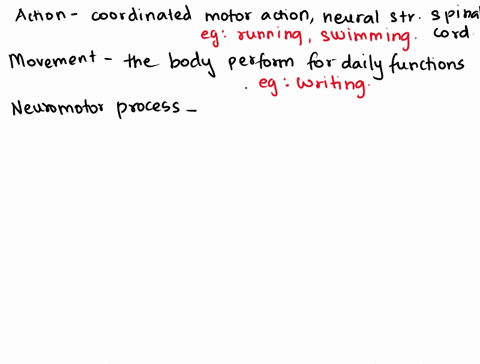 Action - coordinated motor action, neural str. spinal
eg: running, swimming. cord
Movement - the body perform for daily functions
. eg: writing.
Neuromotor process -